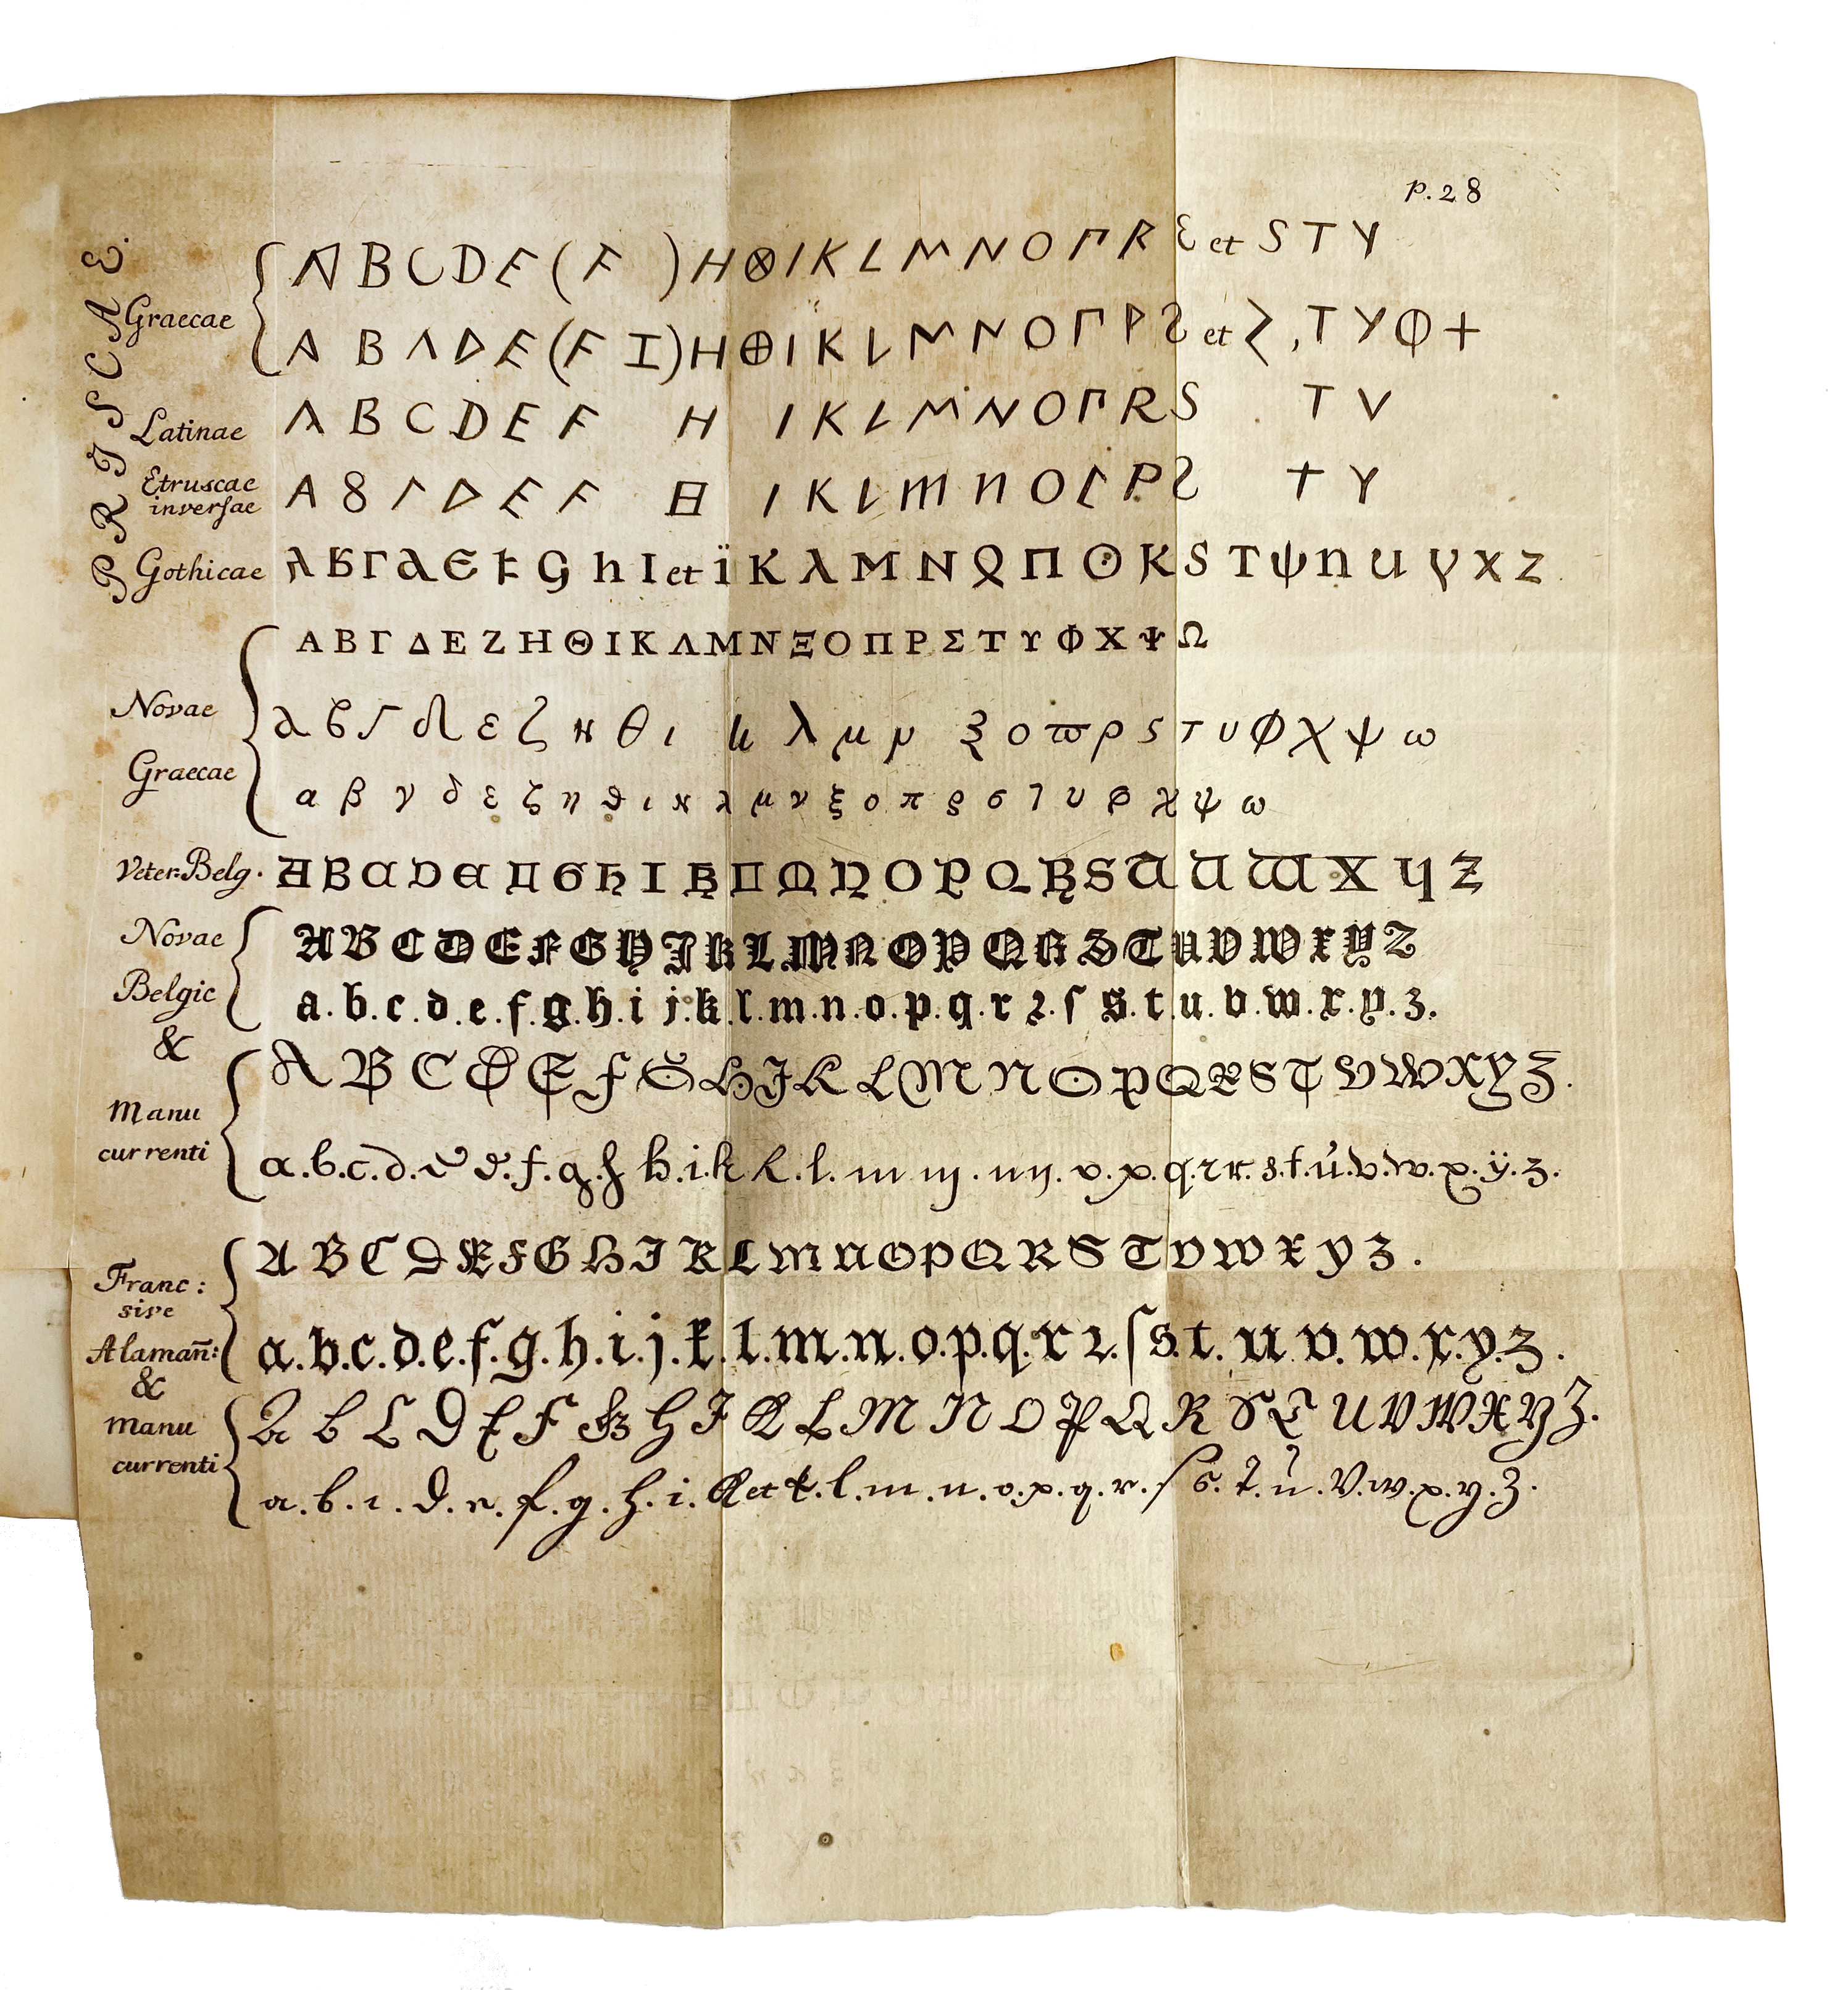 p. 28
PRISCAE.
Graecae
A B C D E ( F ) H ⊗ I K L M N O Π R Ɛ et S T Y
A B Λ D E ( F I ) H ⊕ I K L M N O Γ P Ƨ et Ɀ , T Y Φ +
Latinae A B C D E F H I K L M N O Π R S T V
Etruscae inversae A 8 Γ D E F 日 I K L M N O P Ƨ T Y
Gothicae λ Б Γ Є G h I et ï K λ M N Π ʘ K S T ψ n u x z
Novae Graecae
Α Β Γ Δ Ε Ζ Η Θ Ι Κ Λ Μ Ν Ξ Ο Π Ρ Σ Τ Υ Φ Χ Ψ Ω
α β γ δ ε ζ η θ ι κ λ μ ν ξ ο ϖ ρ ς τ υ φ χ ψ ω
α β γ δ ε ζ η ϑ ι κ λ μ ν ξ ο π ϱ σ τ υ φ χ ψ ω
Veter: Belg. A B C D E G H I K M N O P Q R S T U W X Y Z
Novae Belgic
A B C D E F G H J K L M N O P Q R S T U V W X Y Z
a. b. c. d. e. f. g. h. i j. k. l. m. n. o. p. q. r ꝛ. ſ s. t. u. v. w. x. y. z.
& Manu currenti
A B C D E F G H J K L M N O P Q R S T V W X Y Z.
a. b. c. d. e e. f. g. h h. i. k k. l. m m. n n. o. p. q. r r. s. t. u. v. w. x. ÿ. z.
Franc: sive Alamañ:
A B C D E F G H I K L M N O P Q R S T V W X Y Z.
a. b. c. d. e. f. g. h. i. j. k. l. m. n. o. p. q. r ꝛ. ſ s. t. u v. w. x. y. z.
& manu currenti
A B C D E F G H I K L M N O P Q R S T U V W X Y Z.
a. b. c. d. e. f. g. h. i. k et k. l. m. n. o. p. q. r. ſ s. t. u. v. w. x. y. z.